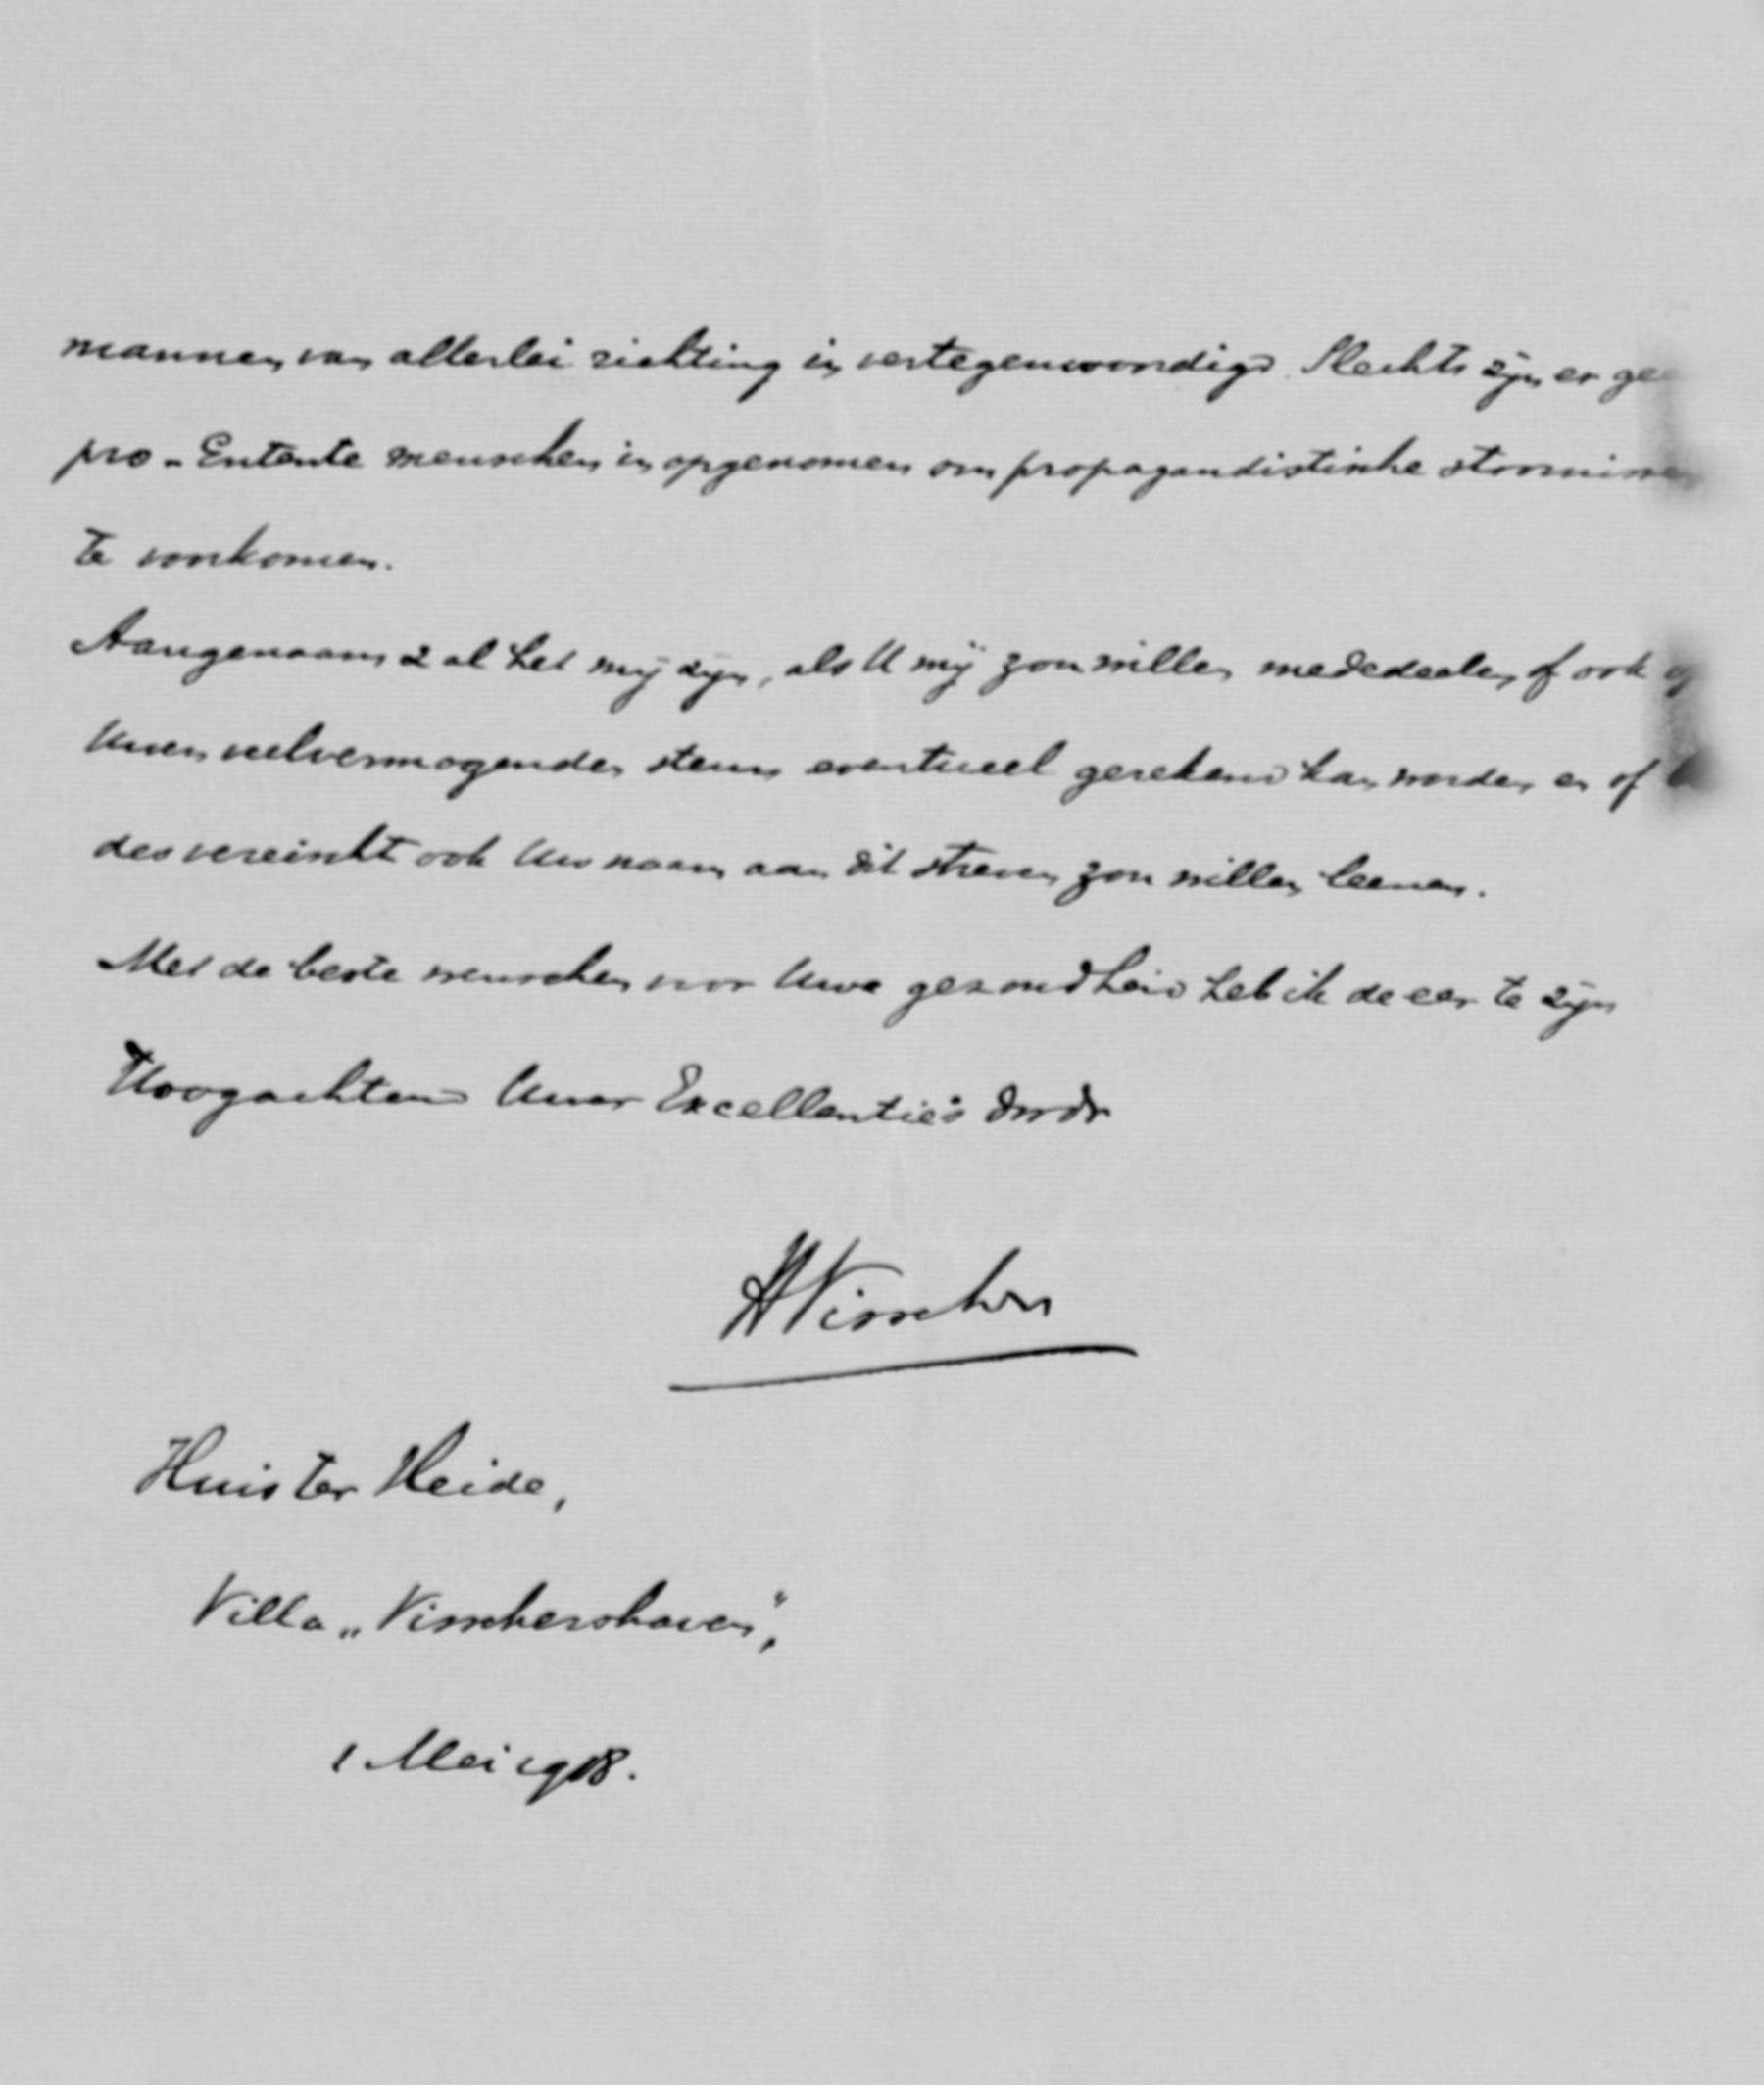 mannen van allerlei richting in vertegenwoordigd. Slechts zijn er
pro-Entente menschen in opgenomen om propagandistische
te voorkomen.
Aangenaam zal het mij zijn, als U mij zou willen mededeelen, of ook op
Uwen veelvermogenden steun eventueel gerekend kan worden en of
desvereischt ook Uw naam aan dit streven zou willen leenen.
Met de beste wenschen voor Uwe gezondheid heb ik de eer te zijn
Hoogachtend Uwer Excellentie's dwdr
HVisscher
Huis ter Heide,
Villa „Visschershaven",
1 Mei 1918.